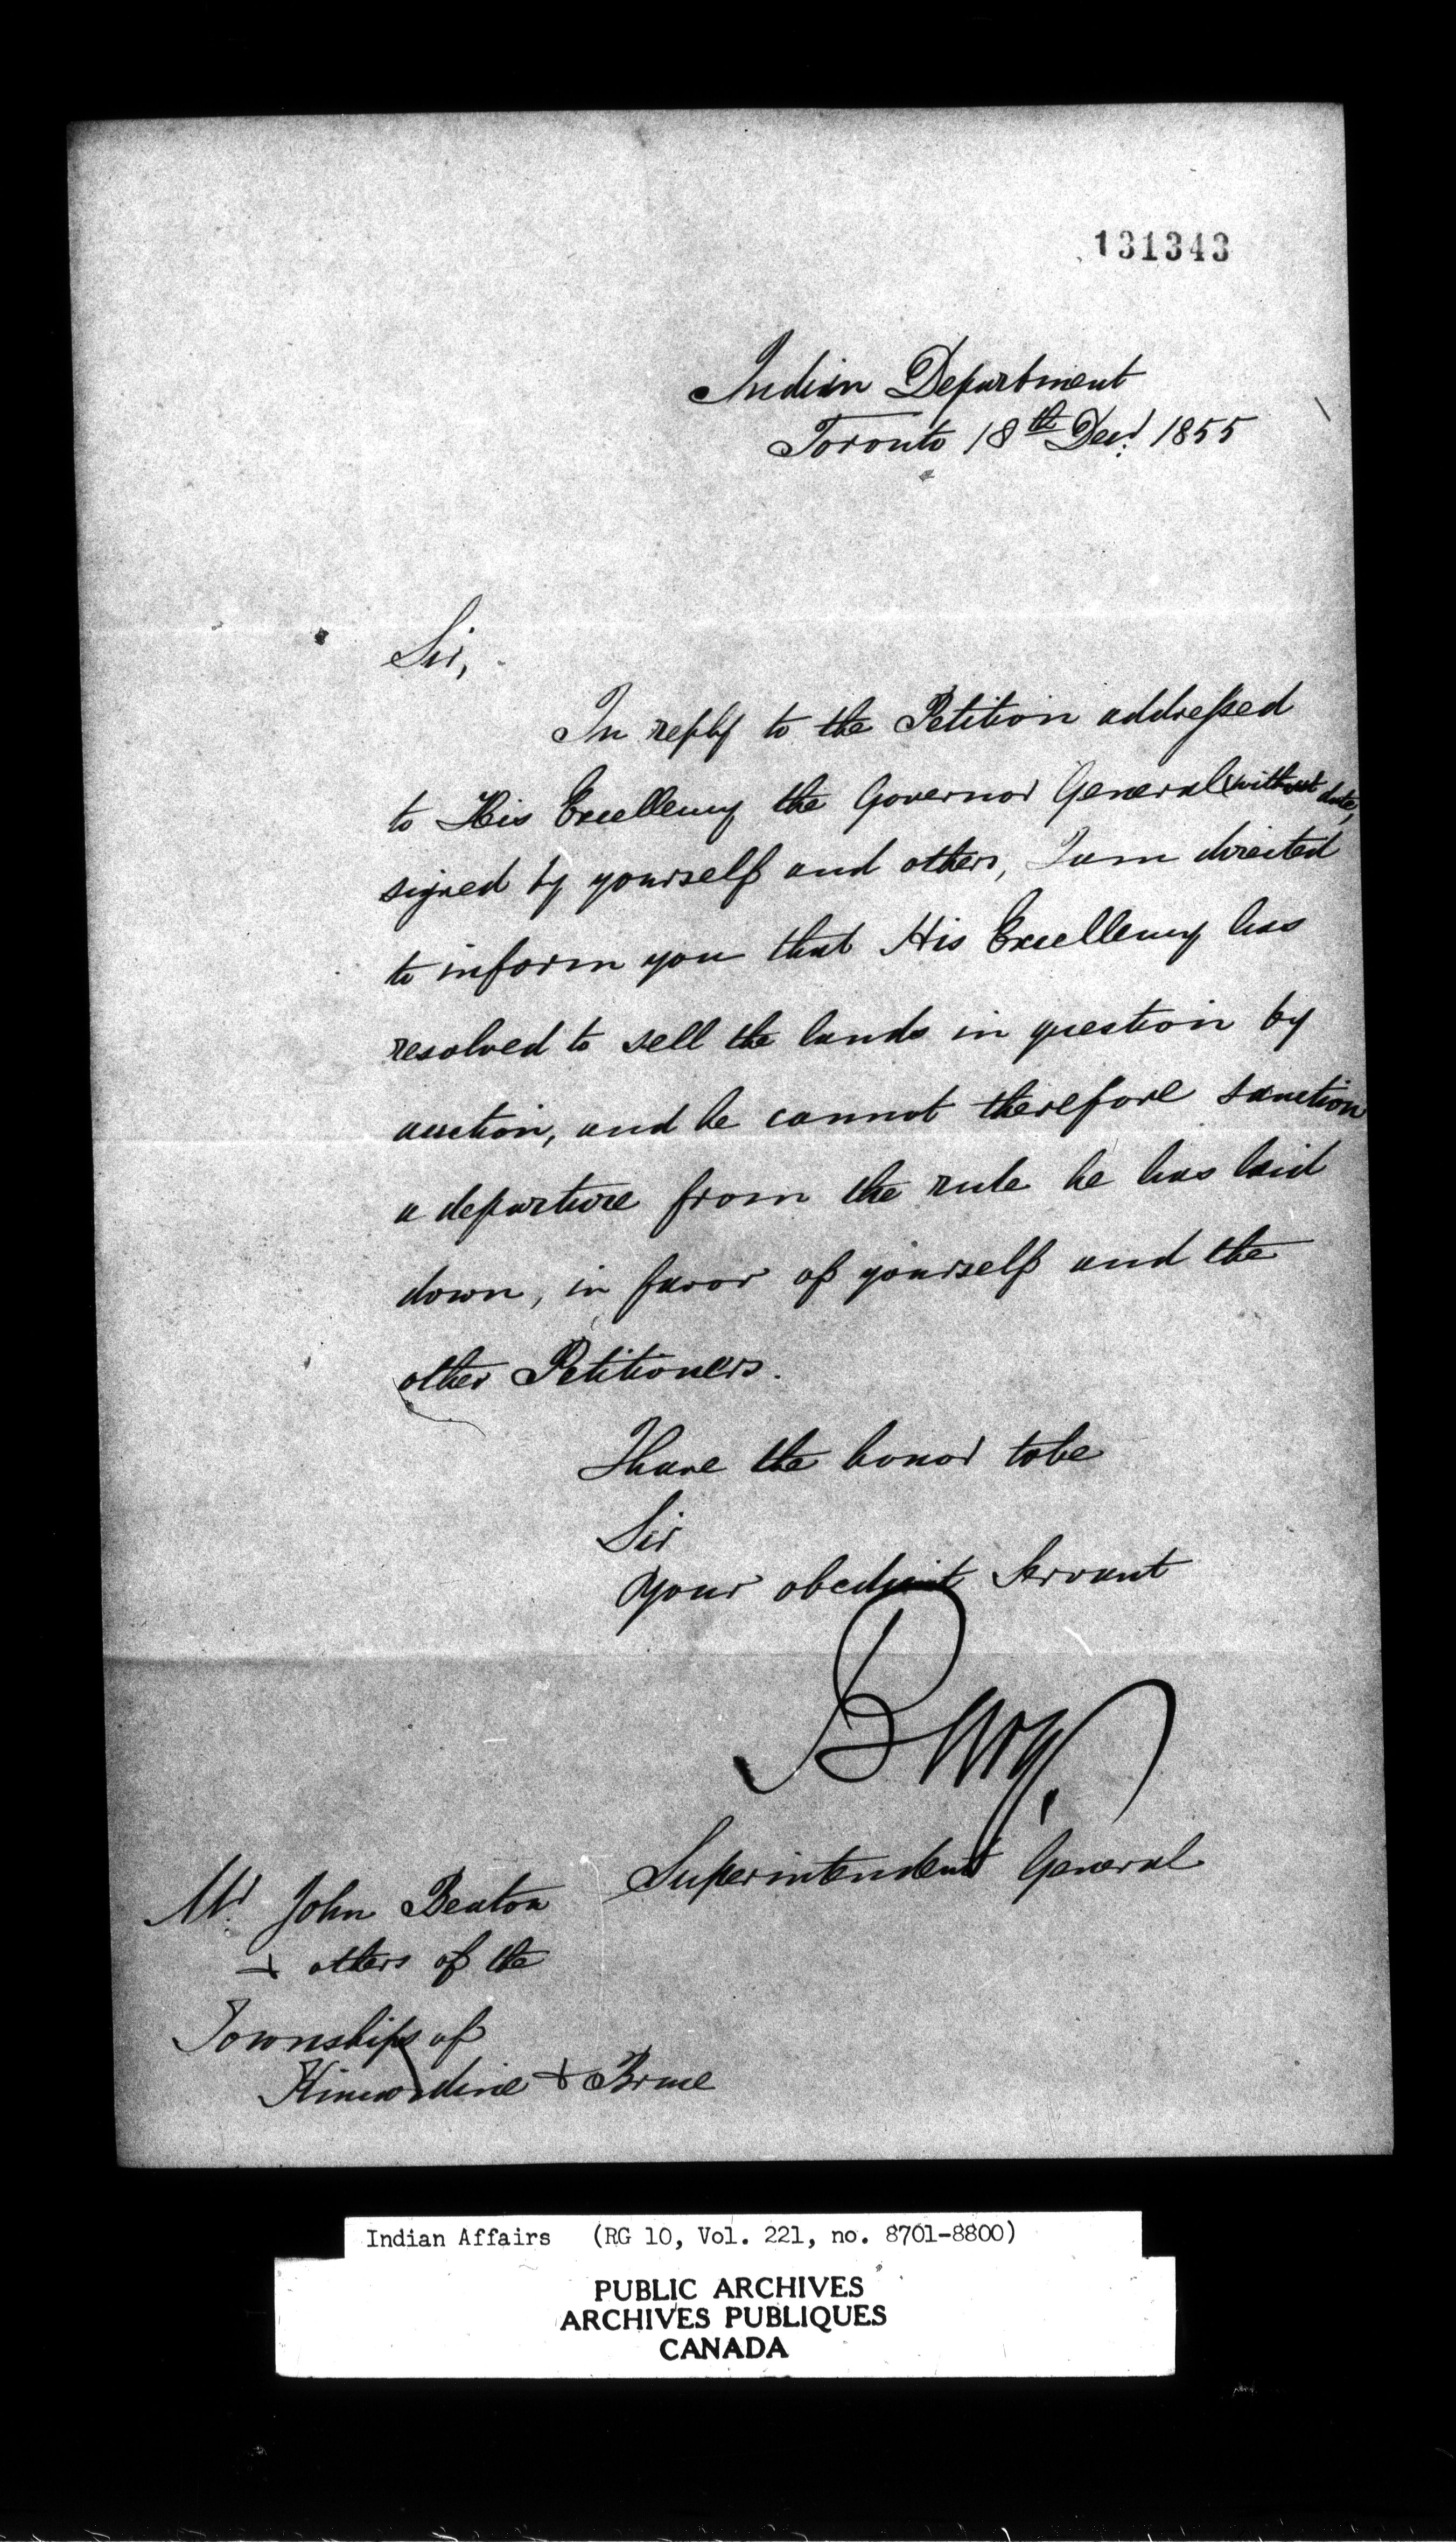 131343
Indian Department
Toronto 18th Decr. 1855
Sir,
In reply to the Petition addressed
to His Excellency the Governor General (without date,
signed by yourself and others, I am directed
to inform you that His Excellency has
resolved to sell the lands in question by
auction, and he cannot therefore sanction
a departure from the rule he has laid
down, in favor of yourself and the
other Petitioners.
I have the honor to be
Sir
Your obedient Servant
Superintendent General
Mr. John Beaton
+ others of the
Townships of
Kincardine + Bruce
Indian Affairs (RG 10, Vol. 221, no. 8701-8800)
PUBLIC ARCHIVES
ARCHIVES PUBLIQUES
CANADA